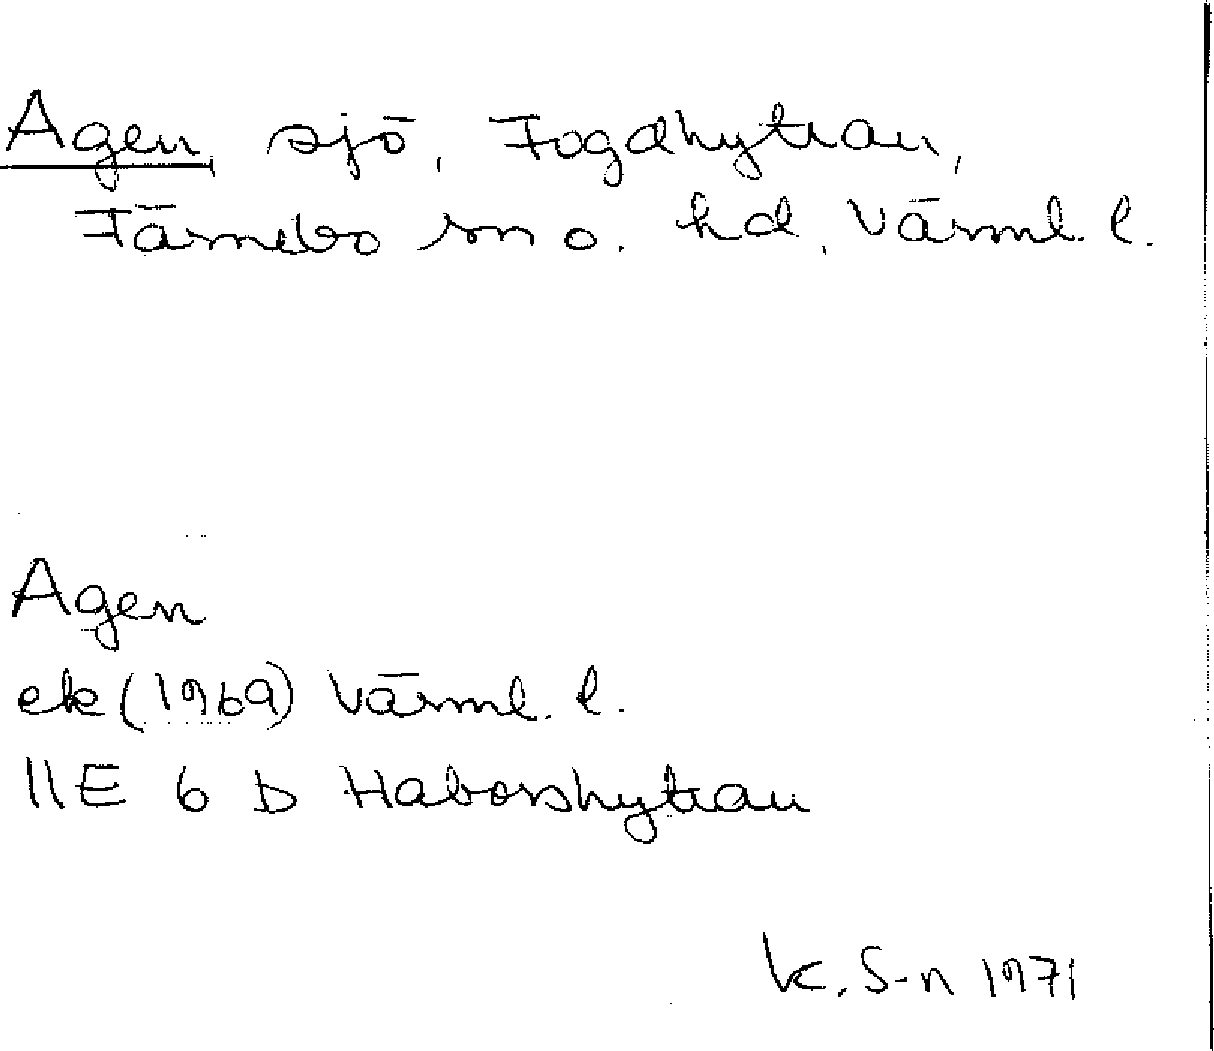 Agen, sjö, Fogdhyttan,
Färnebo sn o. hd, Värml. l.
Agen
ek (1969) Värml. l.
11E 6 b Haborshyttan
K. S-n 1971